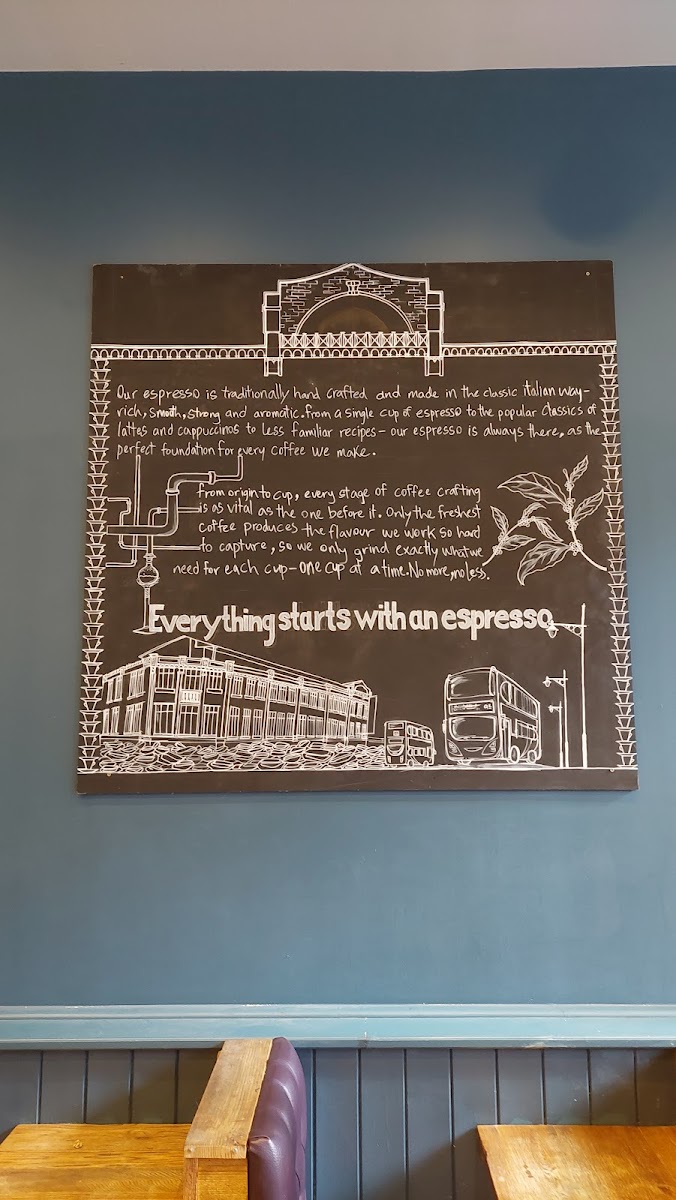 Our espresso is traditionally hand crafted and made in the classic italian way-
rich, smooth, strong and aromatic. from a single cup of espresso to the popular classics of
lattes and cappuccinos to less familiar recipes - our espresso is always there, as the
perfect foundation for every coffee we make.
from origin to cup, every stage of coffee crafting
is as vital as the one before it. Only the freshest
coffee produces the flavour we work so hard
to capture, so we only grind exactly what we
need for each cup - one cup at a time. No more, no less.
Everything starts with an espresso